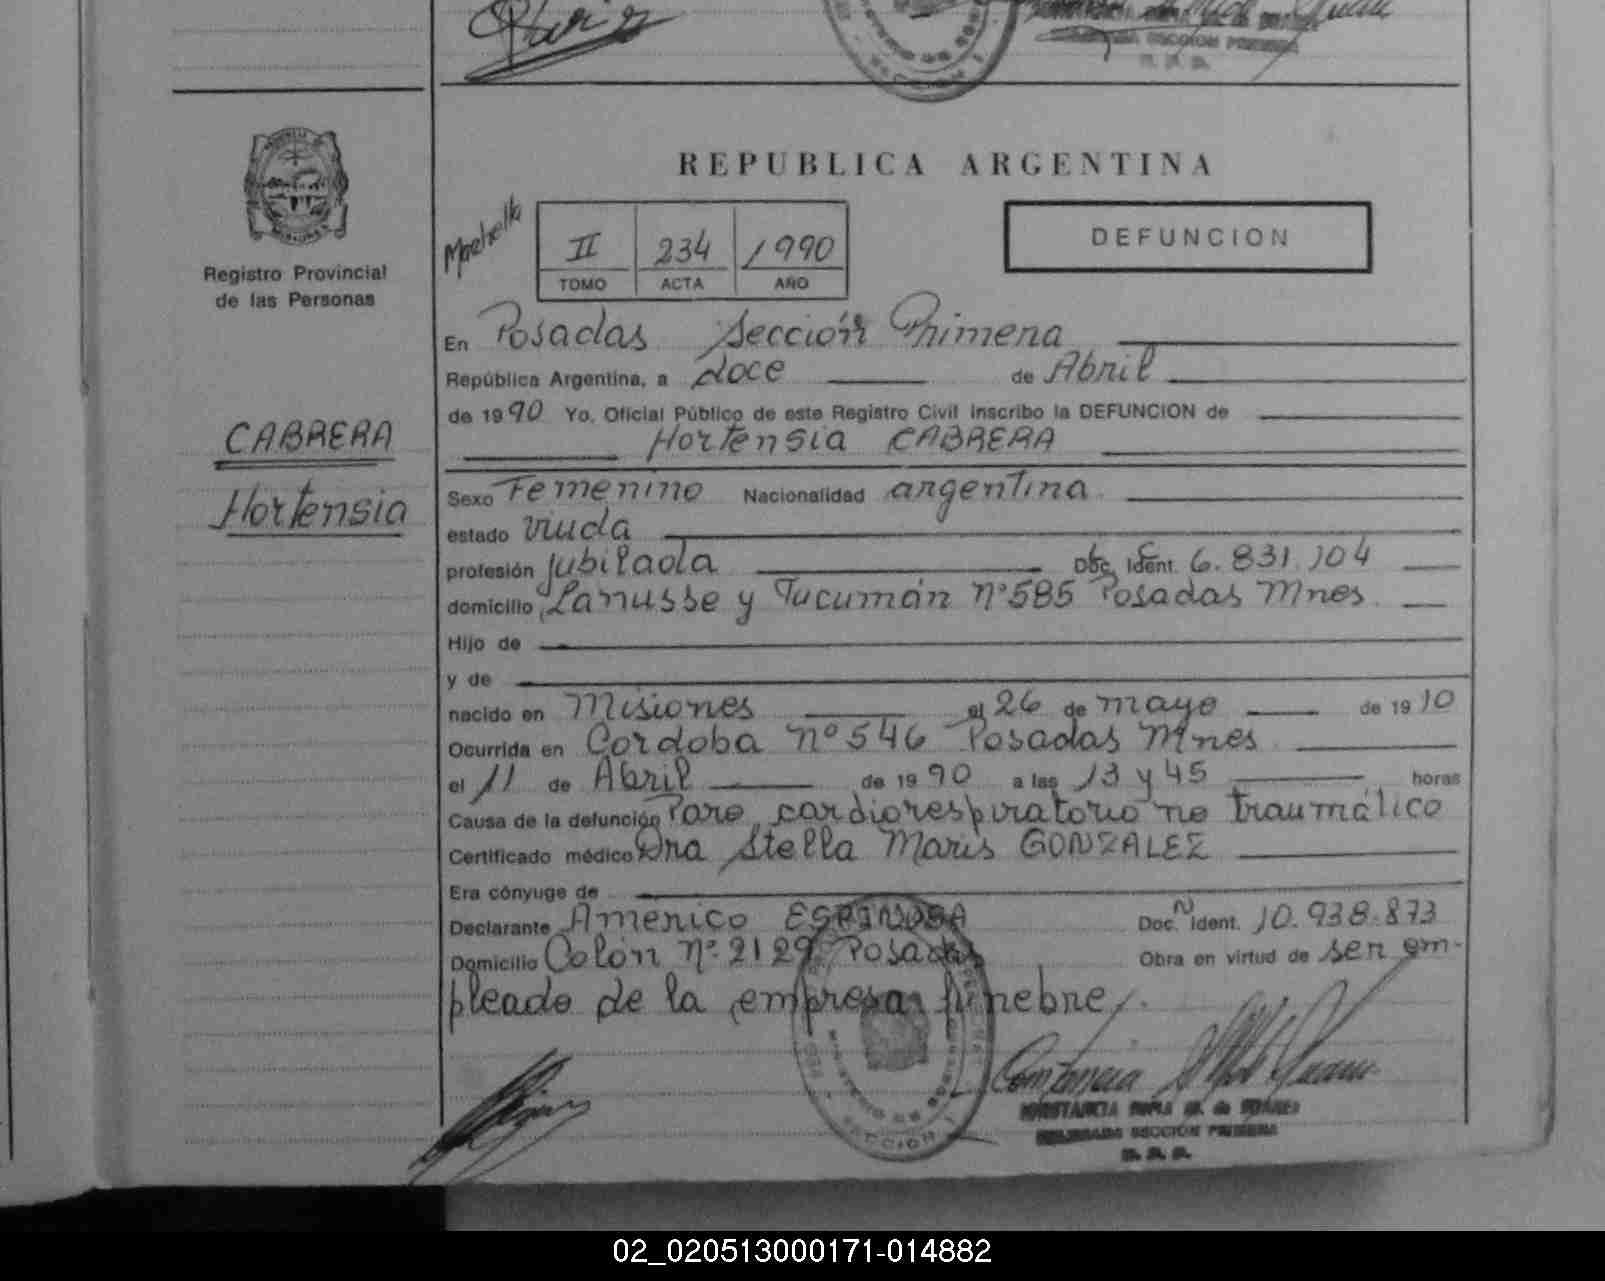 REPUBLICA ARGENTINA
Registro Provincial
de las Personas
II 234 1990
TOMO ACTA AÑO
DEFUNCION
CABRERA
Hortensia
En Posadas Sección Primera
República Argentina, a doce de Abril
de 1990 Yo, Oficial Público de este Registro Civil inscribo la DEFUNCION de
Hortensia CABRERA
Sexo Femenino Nacionalidad argentina
estado viuda
profesión jubilada Doc. Ident. 6.831.104
domicilio Lanusse y Tucumán Nº585 Posadas Mnes.
Hijo de
y de
nacido en Misiones el 26 de mayo de 1910
Ocurrida en Cordoba nº 546 Posadas Mnes
el 11 de Abril de 1990 a las 13 y 45 horas
Causa de la defunción Paro cardiorespiratorio no traumático
Certificado médico Dra Stella Maris GONZALEZ
Era cónyuge de
Declarante Americo ESPINOSA Doc. N Ident. 10.938.873
Domicilio Colón Nº 2129 Posadas Obra en virtud de ser em-
pleado de la empresa fúnebre
SECCION PRIMERA
02_020513000171-014882